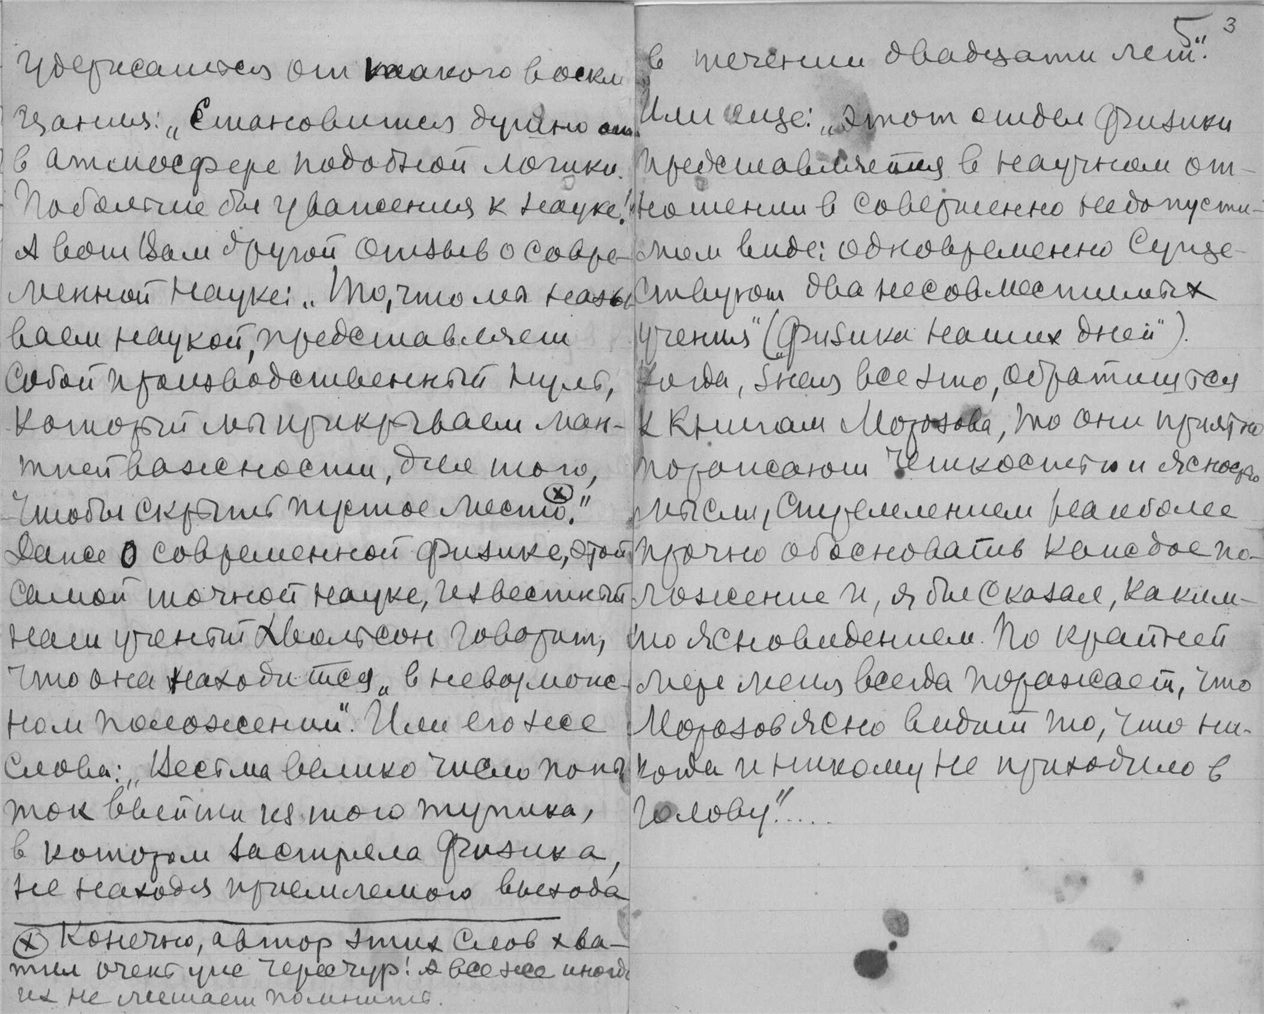 удержаться от такого воскли
цания: „Становится душно
в атмосфере подобной логики.
Побольше бы уважения к науке!"
А вот Вам другой отзыв о совре-
менной науке: „То, что мы назы
ваем наукой, представляет
собой производственный нуль,
который мы прикрываем ман-
тией важности, для того,
чтобы скрыть пустое место."(x)
Даже о современной физике, этой
самой точной науке, известный
наш ученый Хвольсон говорит,
что она находится „в невозмож-
ном положении". Или его же
слова: „Весьма велико число попы
ток выйти из того тупика,
в котором застряла физика,
не находя приемлемого выхода
(x) Конечно, автор этих слов хва-
тил очень уже чересчур! А все же иногда
их не мешает помнить.
5 3
в течении двадцати лет".
Или еще: „Этот отдел физики
представляется в научном от-
ношении в совершенно недопусти-
мом виде: одновременно суще-
ствуют два несовместимых
учения" („Физика наших дней").
Когда, зная все это, обратишься
к книгам Морозова, то они приятно
поражают четкостью и ясностью
мысли, стремлением наиболее
прочно обосновать каждое по-
ложение и, я бы сказал, каким-
то ясновидением. По крайней
мере меня всегда поражает, что
Морозов ясно видит то, что ни-
когда и никому не приходило в
голову!"....